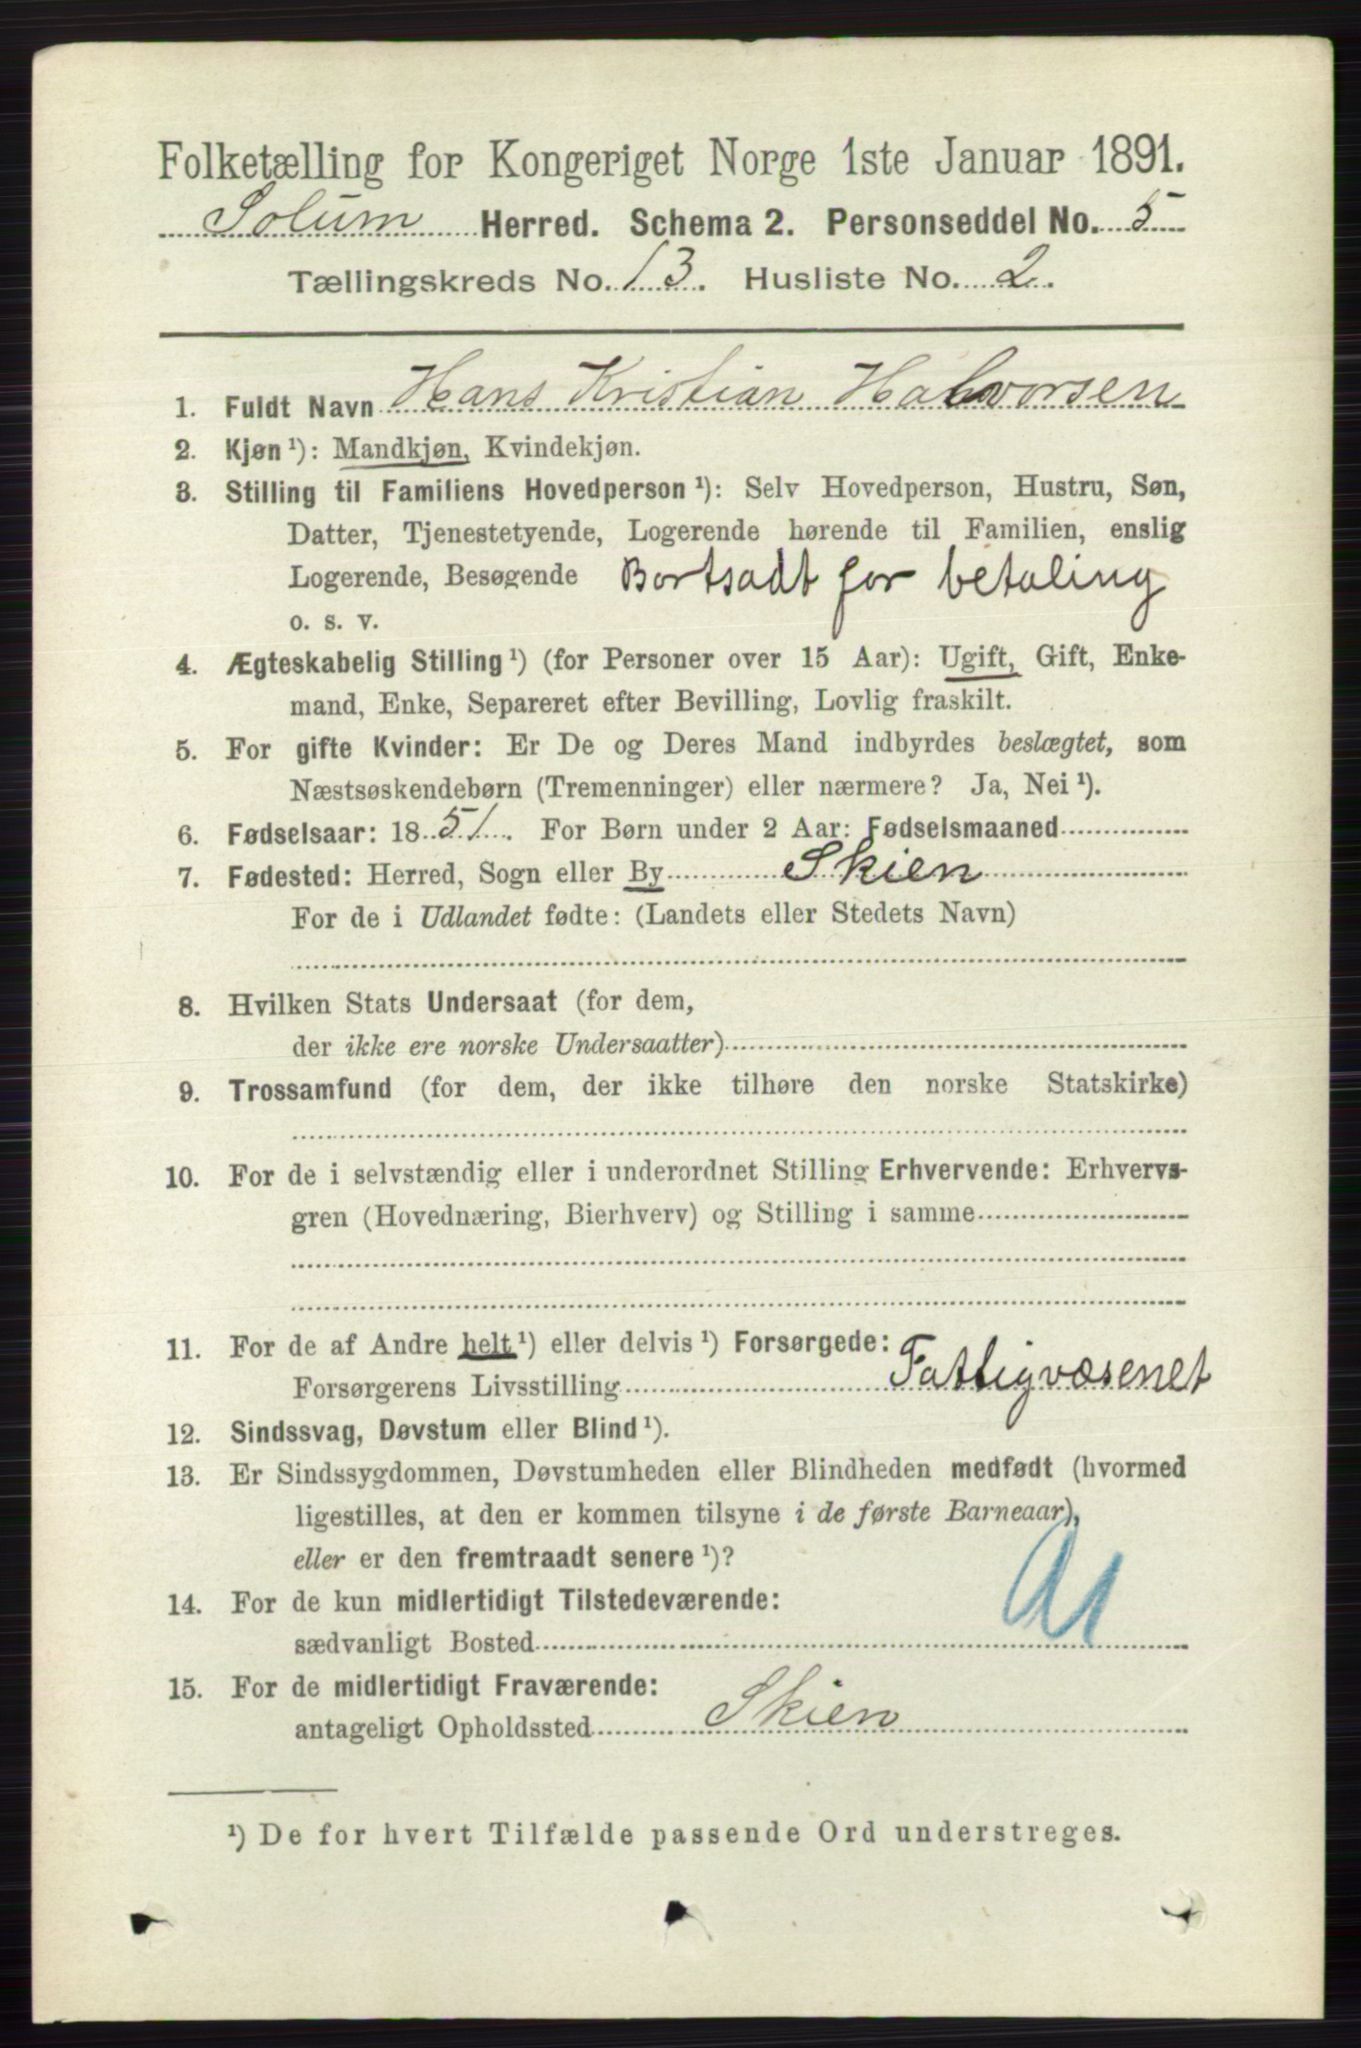 Folketælling for Kongeriget Norge 1ste Januar 1891.
Solum Herred. Schema 2. Personseddel No. 5
Tællingskreds No. 13. Husliste No. 2.
1. Fuldt Navn Hans Kristian Halvorsen
2. Kjøn ¹): Mandkjøn, Kvindekjøn.
3. Stilling til Familiens Hovedperson ¹): Selv Hovedperson, Hustru, Søn,
Datter, Tjenestetyende, Logerende hørende til Familien, enslig
Logerende, Besøgende Bortsadt for betaling
o. s. v.
4. Ægteskabelig Stilling ¹) (for Personer over 15 Aar): Ugift, Gift, Enke-
mand, Enke, Separeret efter Bevilling, Lovlig fraskilt.
5. For gifte Kvinder: Er De og Deres Mand indbyrdes beslægtet, som
Næstsøskendebørn (Tremenninger) eller nærmere? Ja, Nei ¹).
6. Fødselsaar: 1851. For Børn under 2 Aar: Fødselsmaaned
7. Fødested: Herred, Sogn eller By Skien
For de i Udlandet fødte: (Landets eller Stedets Navn)
8. Hvilken Stats Undersaat (for dem,
der ikke ere norske Undersaatter)
9. Trossamfund (for dem, der ikke tilhøre den norske Statskirke)
10. For de i selvstændig eller i underordnet Stilling Erhvervende: Erhvervs-
gren (Hovednæring, Bierhverv) og Stilling i samme
11. For de af Andre helt ¹) eller delvis ¹) Forsørgede:
Forsørgerens Livsstilling Fattigvæsenet
12. Sindssvag, Døvstum eller Blind ¹).
13. Er Sindssygdommen, Døvstumheden eller Blindheden medfødt (hvormed
ligestilles, at den er kommen tilsyne i de første Barneaar),
eller er den fremtraadt senere ¹)?
14. For de kun midlertidigt Tilstedeværende:
sædvanligt Bosted
15. For de midlertidigt Fraværende:
antageligt Opholdssted Skien
¹) De for hvert Tilfælde passende Ord understreges.